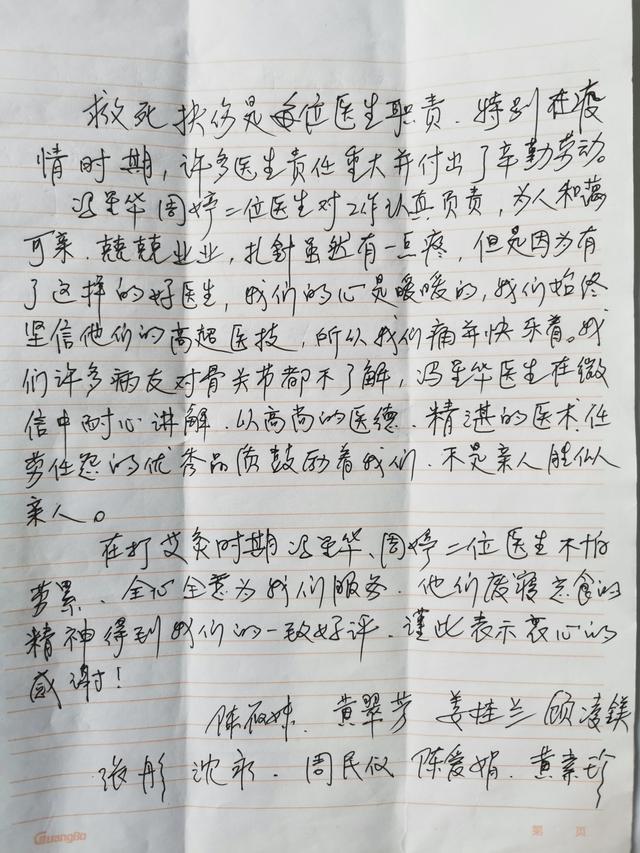 救死扶伤是每位医生职责.特别在疫
情时期,许多医生责任重大并付出了辛勤劳动。
冯 华周婷二位医生对工作认真负责,为人和蔼
可亲.兢兢业业,扎針虽然有一点疼,但是因为有
了这样的好医生,我们的心是暖暖的,我们始终
坚信他们的高超医技,所以我们痛并快乐着。我
们许多病友对骨关节都不了解,冯 华医生在微
信中耐心讲解.以高尚的医德.精湛的医术,任
劳任怨的优秀品质鼓励着我们.不是亲人胜似
亲人。
在打艾灸时期冯 华、周婷二位医生不怕
劳累.全心全意为我们服务.他们废寝忘食的
精神得到我们的一致好评.谨此表示衷心的
感谢!
陈 妹.黄翠芳 姜桂兰 顾凌鎂
张彤 沈 .周民仪 陈爱娟.黄素珍
GuangBo
第 页